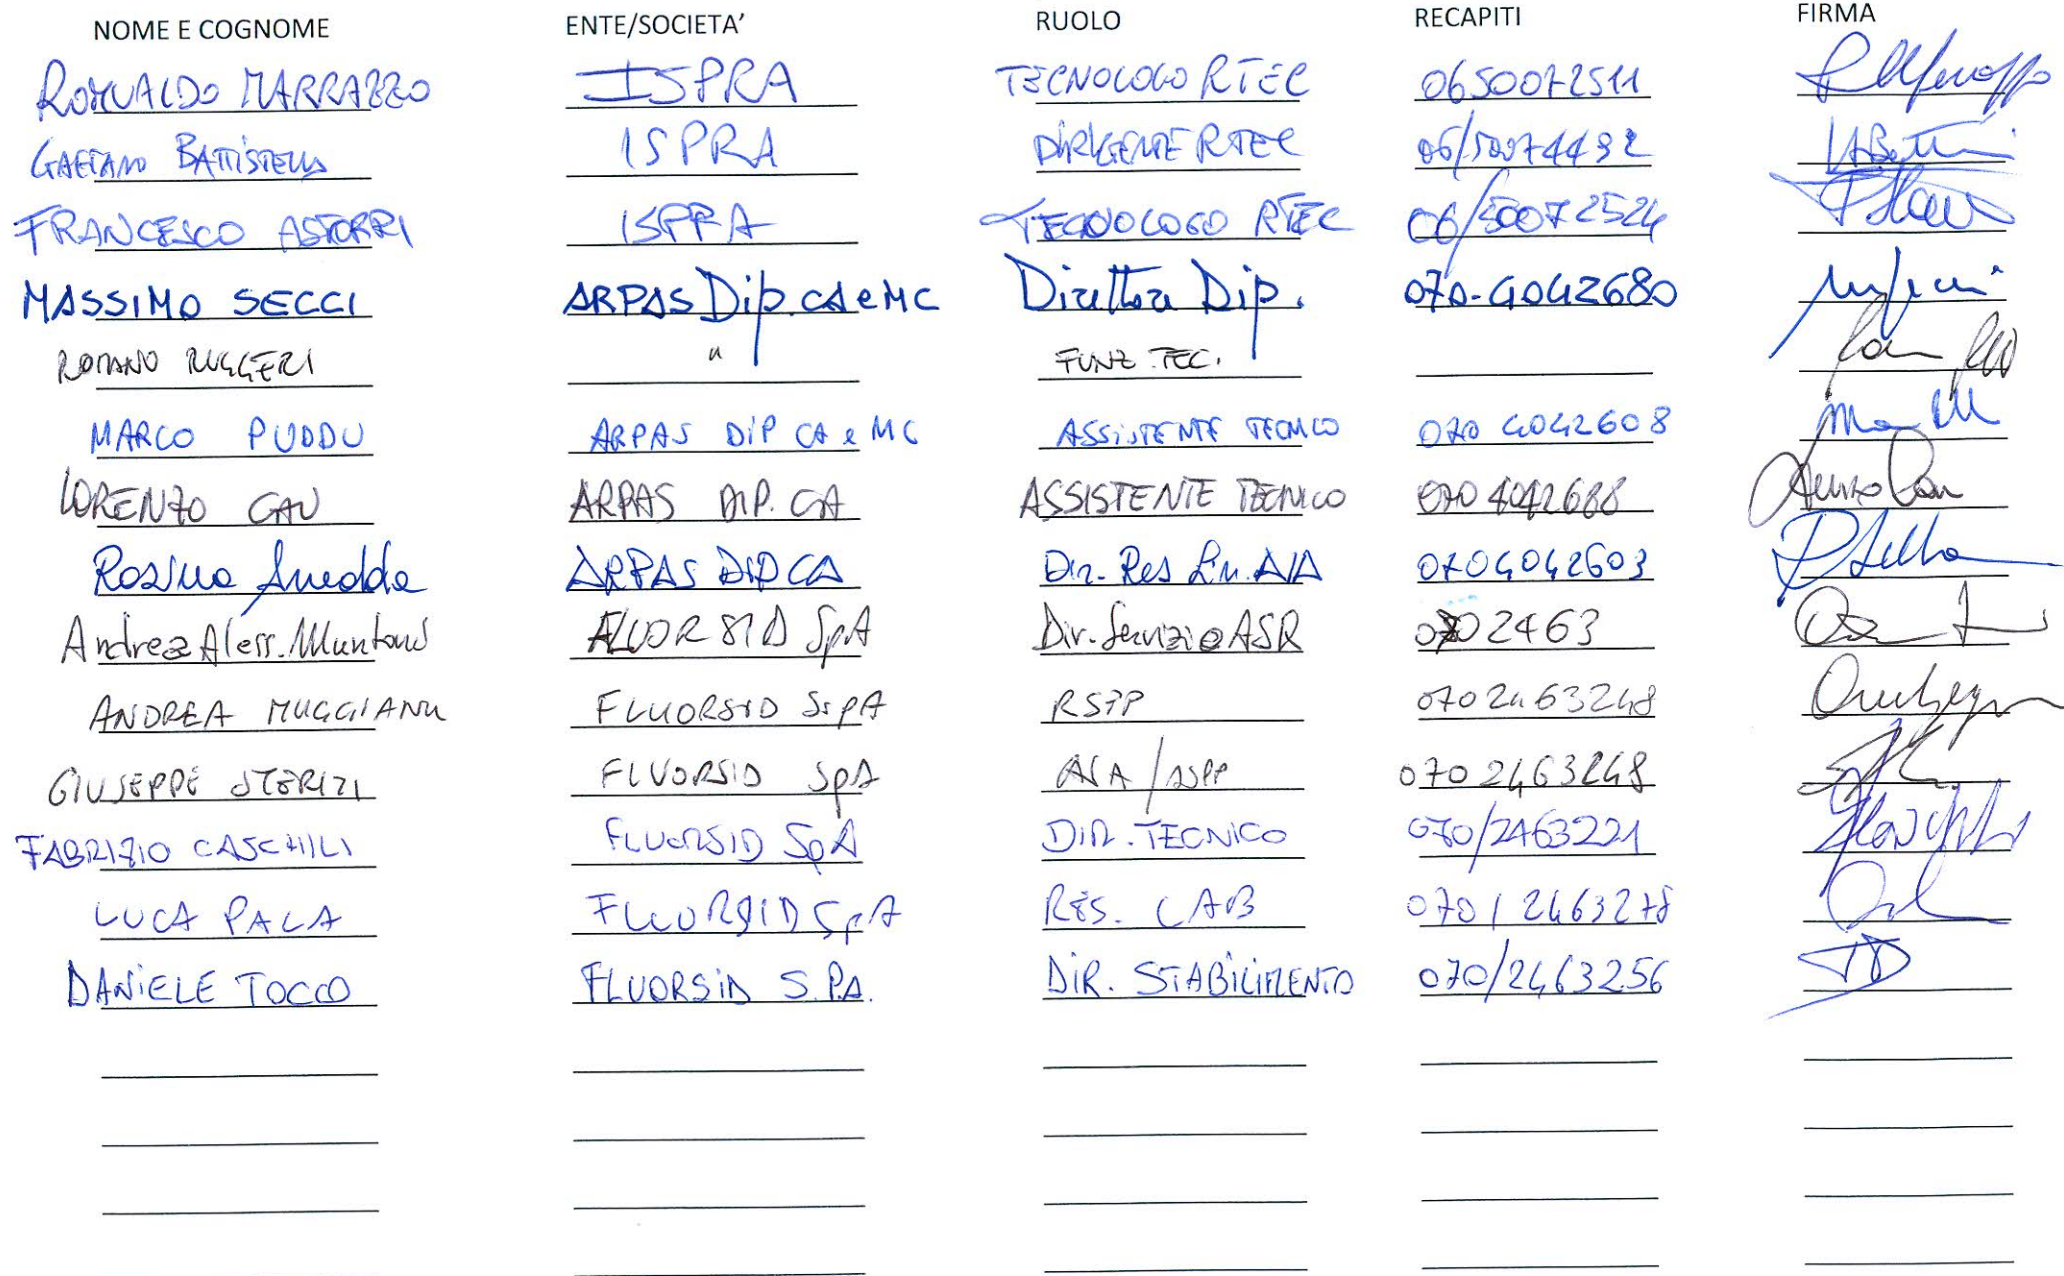 NOME E COGNOME ENTE/SOCIETA' RUOLO RECAPITI FIRMA
ROMUALDO MARRAZZO ISPRA TECNOLOGO RTEC 0650072511
GAETANO BATTISTELLA ISPRA DIRIGENTE RTEC 06/50074432
FRANCESCO ASTORRI ISPRA TECNOLOGO RTEC 06/50072524
MASSIMO SECCI ARPAS Dip. CA e MC Direttore Dip. 070-4042680
ROMANO RUGGERI " FUNZ. TEC.
MARCO PUDDU ARPAS DIP CA e MC ASSISTENTE TECNICO 070 4042608
LORENZO CAU ARPAS DIP. CA ASSISTENTE TECNICO 070 4042688
Rosina Anedda ARPAS DIP CA Dir. Res Lin. AIA 0704042603
Andrea Aless. Muntoni FLUORSID SpA Dir. Servizio ASR 0702463
ANDREA MUGGIANU FLUORSID SpA RSPP 0702463248
GIUSEPPE STERIZI FLUORSID SpA AIA/ASPP 0702463248
FABRIZIO CASCHILI FLUORSID SpA DIR. TECNICO 070/2463221
LUCA PALA FLUORSID SpA RES. LAB 070/2463278
DANIELE TOCCO FLUORSID S.P.A. DIR. STABILIMENTO 070/2463256